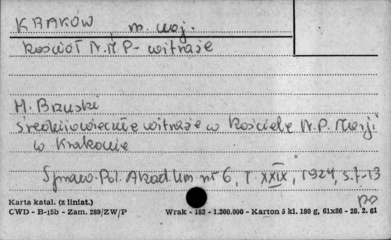 KRAKÓW, m. woj.
Kościół N.M.P - witraże
M. Bruski
Średniowieczne witraże w Kościele N.P. Marji
w Krakowie
Spraw. Pol. Akad Um nr 6, T XXIX, 1924, s. 7-13
Karta katal. (z liniat.)
CWD - B-15b - Zam. 289/ZW/P Wrak - 183 - 1.200.000 - Karton 5 kl. 180 g, 61x86 - 28. 2. 61